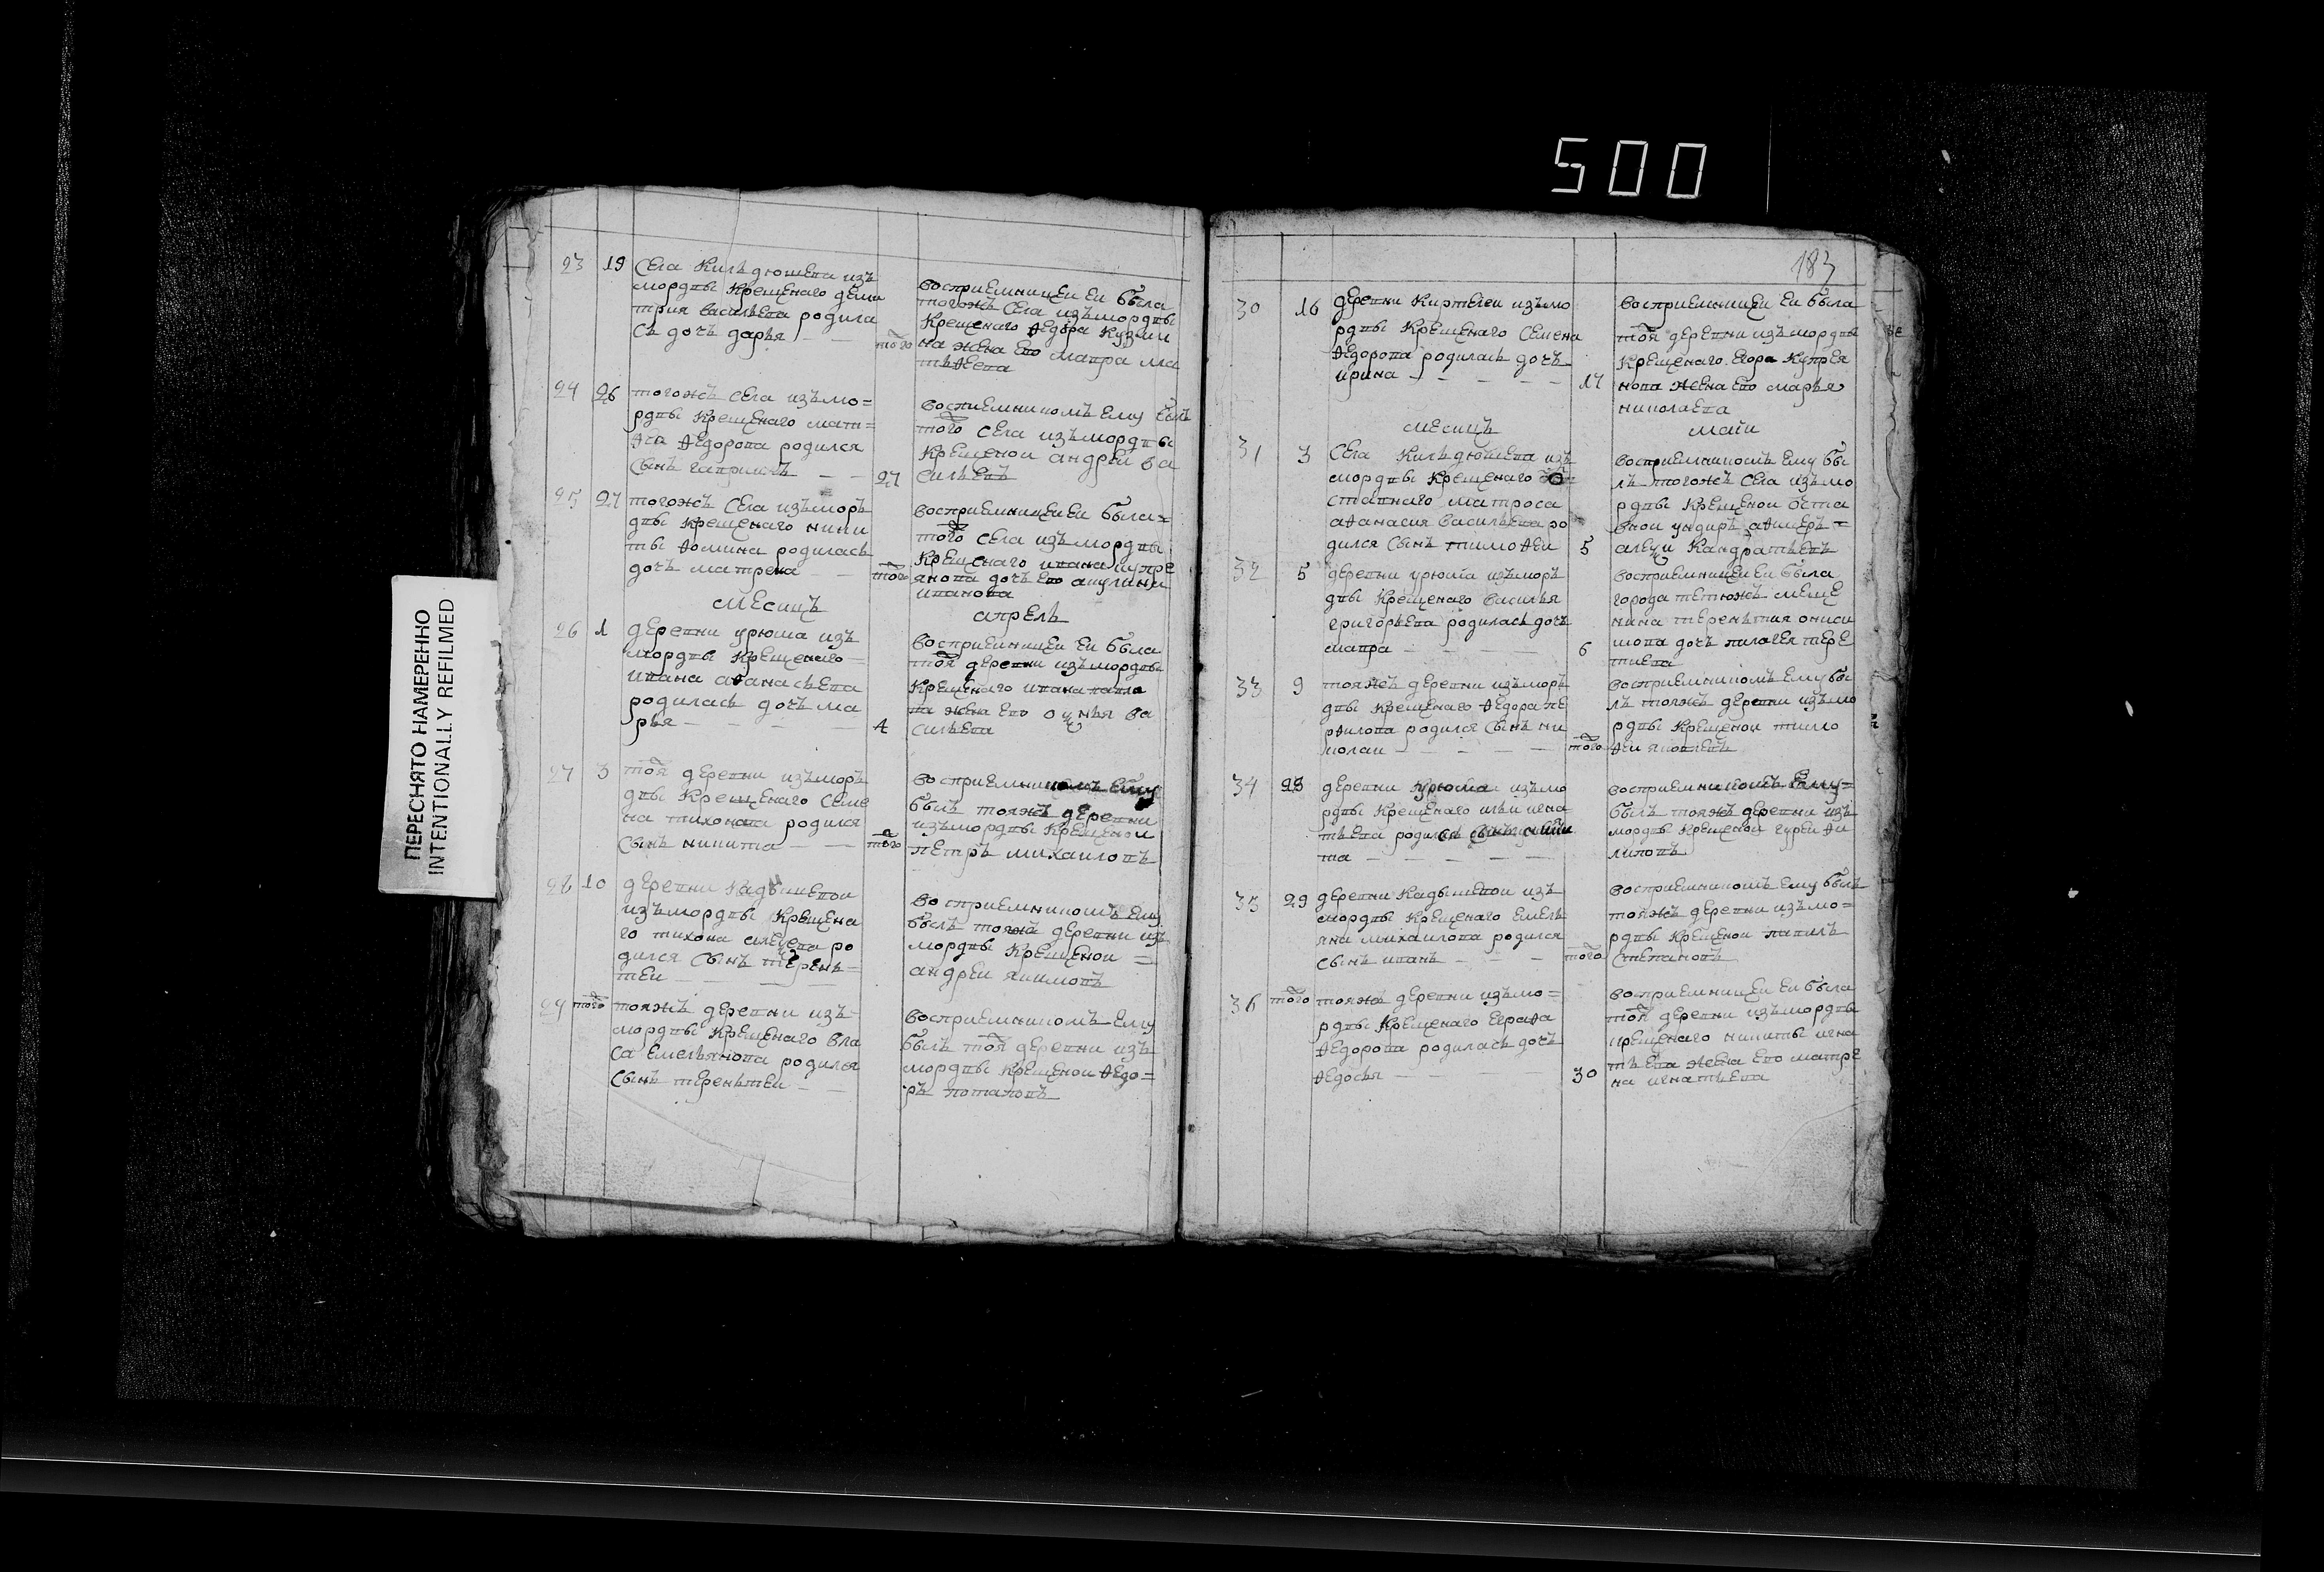 500
183
ПЕРЕСНЯТО НАМЕРЕННО
INTENTIONALLY REFILMED
23 19 Села Кильдюшева изъ
мордвы крещенаго дми
трия васильева родила
съ дочь дарья
того
восприемницеи еи была
тогожъ села изъ мордвы
крещенаго Ѳедора кузми
на жена ево мавра ма
твѣева
24 26 тогожъ села изъ мо=
рдвы крещенаго мат=
ѳея Ѳедорова родился
сынъ гаврилъ
27
восприемникомъ ему былъ
того села изъ мордвы
крещенои андреи ва
сильевъ
25 27 тогожъ села изъ морь
двы крещенаго ники
ты Ѳомина родилась
дочь матрена
того
восприемницеи еи была=
того села изъ мордвы
крещенаго ивана купре
янова дочь ево акулина
иванова
месицъ апрель
26 1 деревни урюма изъ
мордвы крещенаго=
ивана аѳанасьева
родилась дочь ма
рья
4
восприемницеи еи была
тоя деревни изъ мордвы
крещенаго ивана павло
ва жена ево
сильева
27 3 тоя деревни изъ морь
двы крещенаго семе
на тихонова родился
сынъ никита
того
восприемникомъ ему
былъ тояжъ деревни
изъ мордвы крещенои
петръ михаиловъ
28 10 деревни кадышевои
изъ мордвы крещена
го тихона алецева ро
дился сынъ терень=
теи
восприемникомъ ему
былъ тояжъ деревни изъ
мордвы крещенои =
андреи якимовъ
29 того тояжъ деревни изъ
мордвы крещенаго вла
са емельянова родился
сынъ терентеи
восприемникомъ ему
былъ тоя деревни изъ
мордвы крещенои Ѳедо=
ръ потаповъ
30 16 деревни киртелеи изъ мо
рдвы крещенаго семена
Ѳедорова родилась дочь
ирина
17
восприемницеи еи была
тоя деревни изъ мордвы
крещенаго егора купрея
нова жена ево марья
николаева
месицъ маии
31 3 Села Кильдюшева изъ
мордвы крещенаго
ставнаго матроса
аѳанасия васильева ро
дился сынъ тимоѳеи
5
восприемникомъ ему бы
лъ тогожъ села изъ мо
рдвы крещенои оста
внои ундиръ аѳицеръ=
алецеи кандратьевъ
32 5 деревни урюма изъ морь
двы крещенаго василья
григорьева родилась дочь
мавра
6
восприемницеи еи была
города тетюжъ меще
нина терентия ониси
мова дочь пилагея тере
тиева
33 9 тояжъ деревни изъ морь
двы крещенаго Ѳедора пе
рѳилова родился сынъ ни
колаи
того
восприемникомъ ему бы
лъ тояжъ деревни изъ мо
рдвы крещенои тимо
ѳеи яковлевъ
34 28 деревни урюма изъ мо
рдвы крещенаго ильи игна
тьева родился сынъ ники
та
восприемникомъ ему=
былъ тояжъ деревни изъ
мордвы крещенои гуреи Ѳи
липовъ
35 29 деревни кадышевои изъ
мордвы крещенаго емель
яна михаилова родился
сынъ иванъ
того
восприемникомъ ему былъ
тояжъ деревни изъ мо=
рдвы крещенои павилъ
степановъ
36 того тояжъ деревни изъ мо=
рдвы крещенаго евграѳа
Ѳедорова родилась дочь
Ѳедосья
30
восприемницеи еи была
тоя деревни изъ мордвы
крещенаго никиты игна
тьева жена ево матре
на игнатьева